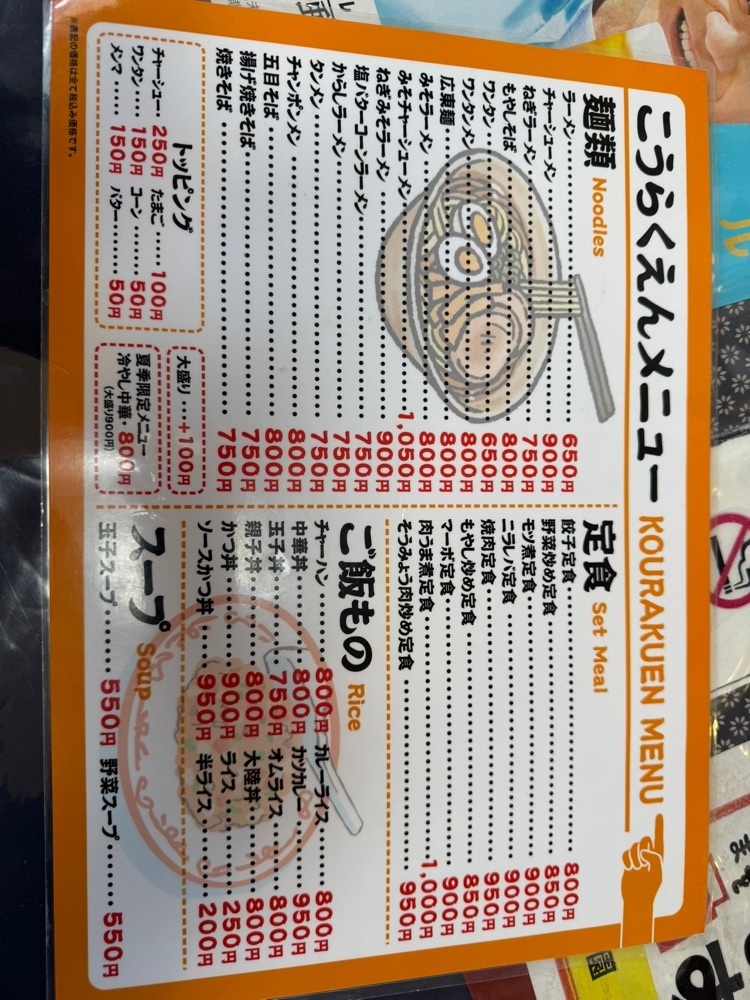 こうらくえんメニュー KOURAKUEN MENU
麺類 Noodles
ラーメン 650円
チャーシューメン 900円
ねぎラーメン 750円
もやしそば 800円
ワンタン 650円
ワンタンメン 800円
広東麺 800円
みそラーメン 800円
みそチャーシューメン 1,050円
ねぎみそラーメン 900円
塩バターコーンラーメン 750円
からしラーメン 750円
タンメン 750円
チャンポンメン 800円
五目そば 800円
揚げ焼きそば 750円
焼きそば 750円
トッピング
チャーシュー 250円 たまご 100円
ワンタン 150円 コーン 50円
メンマ 150円 バター 50円
大盛り …+100円
夏季限定メニュー
冷やし中華・800円
(大盛り900円)
※表記の価格は全て税込み価格です。
定食 Set Meal
餃子定食 800円
野菜炒め定食 850円
モツ煮定食 900円
ニラレバ定食 900円
焼肉定食 950円
もやし炒め定食 850円
マーボ定食 900円
肉うま煮定食 1,000円
そうみょう肉炒め定食 950円
ご飯もの Rice
チャーハン 800円 カレーライス 800円
中華丼 800円 カツカレー 950円
玉子丼 750円 オムライス 800円
親子丼 800円 大陸丼 800円
かつ丼 900円 ライス 250円
ソースかつ丼 950円 半ライス 200円
スープ Soup
玉子スープ 550円 野菜スープ 550円